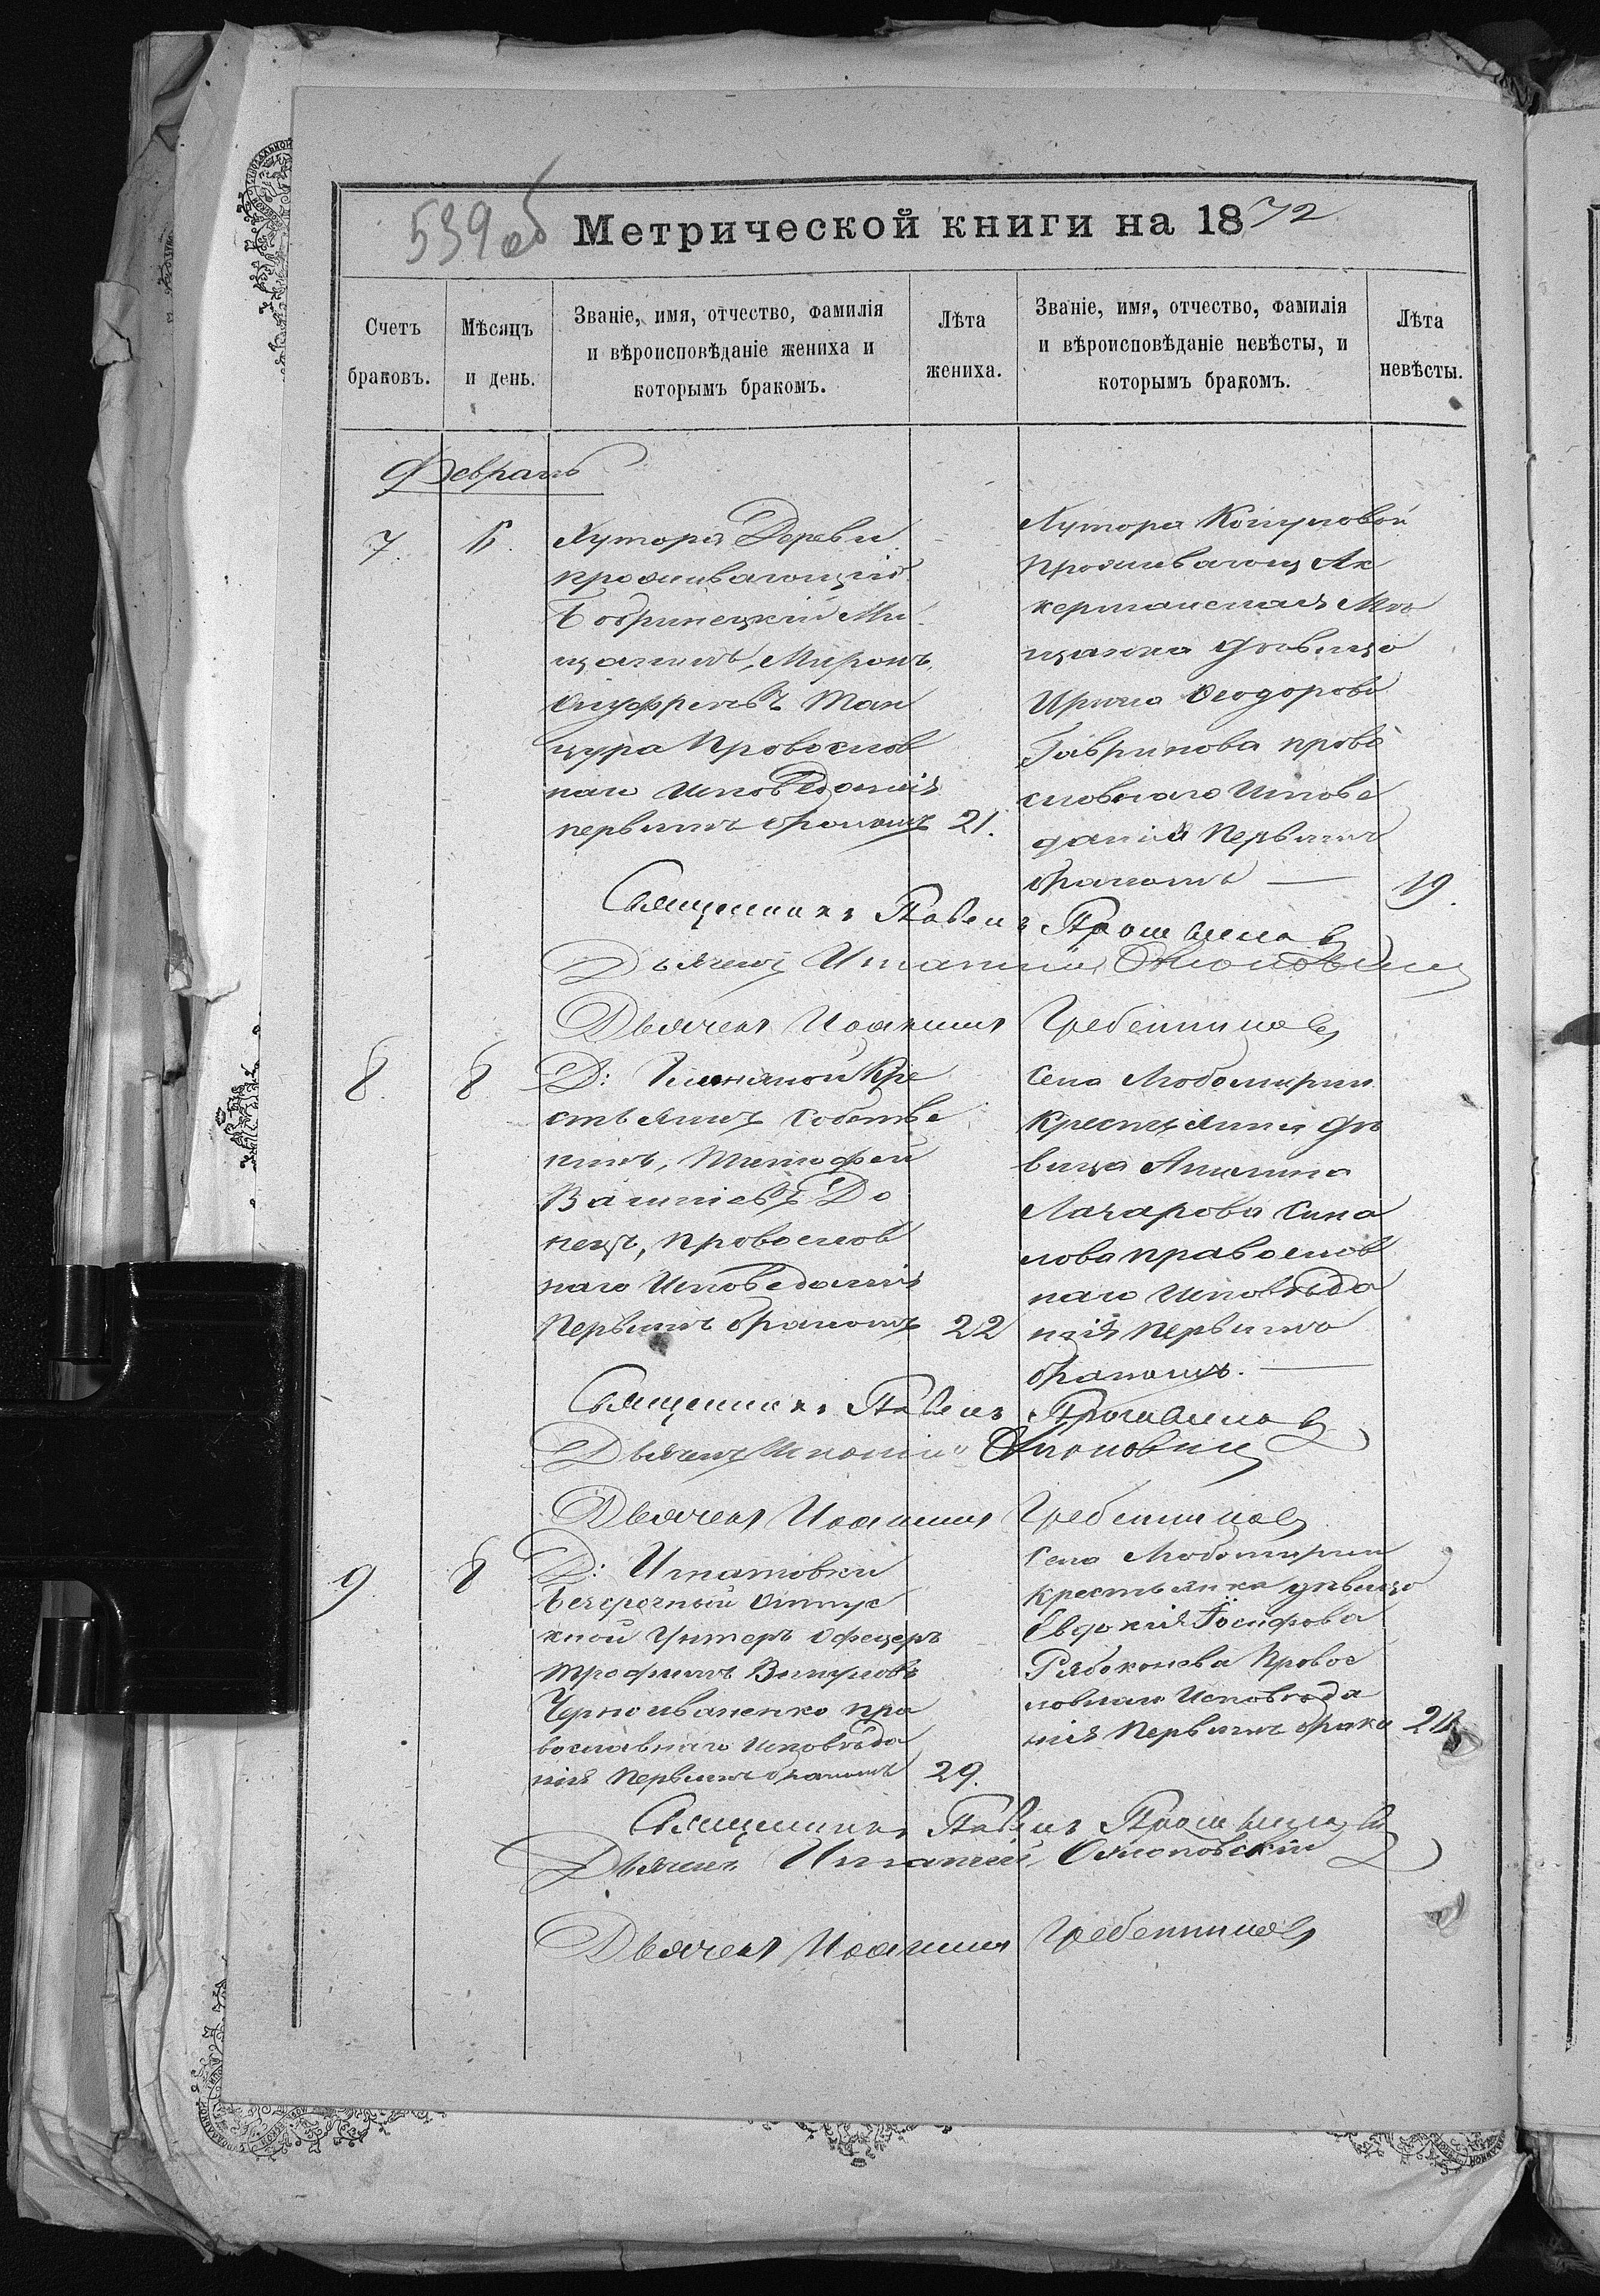 539 об
Метрической книги на 1872
Счетъ браковъ.
Мѣсяцъ и день.
Званіе, имя, отчество, фамилія
и вѣроисповѣданіе жениха и
которымъ бракомъ.
Лѣта жениха.
Званіе, имя, отчество, фамилія
и вѣроисповѣданіе невѣсты, и
которымъ бракомъ.
Лѣта невѣсты.
Февраль
7.
Хутора
проживающій
Бобринецкій Мѣ
щанинъ, Миронъ
Онуфріевъ Ман
цура Православ
наго Исповѣданія
первымъ бракомъ 21.
Хутора
проживающ Ак
керманская Мѣ
щанка дѣвица
Ирина Ѳеодорова
Гаврикова право
славнаго Исповѣ
данія Первымъ
бракомъ — 19.
Священникъ Павелъ
Дьячекъ Игнатій
Дьячекъ Иоакимъ Гребенниковъ
8. 8
Д: Кре
стьянинъ Собстве
никъ, Тимофей
Василіевъ До
нецъ, Православ
наго Исповѣданія
Первымъ бракомъ 22
Села Любомирки
крестьянка дѣ
вица Акилина
Лазарова
православ
наго Исповѣда
нія Первымъ
бракомъ. —
Священникъ Павелъ
Дьячекъ Игнатій
Дьячекъ Иоакимъ Гребенниковъ
9 8
Д: Игнатовки
безсрочный Отпус
кной Унтеръ Офицеръ
Трофимъ Викуловъ
Чорноиваненко пра
вославнаго Исповѣда
нія Первымъ бракомъ 29.
Села Любомирки
крестьянка дѣвица
Евдокія Іосифова
Рябоконева Правос
лавнаго Исповѣда
нія Первымъ брако
Священникъ Павелъ
Дьячекъ Игнатій
Дьячекъ Иоакимъ Гребенниковъ